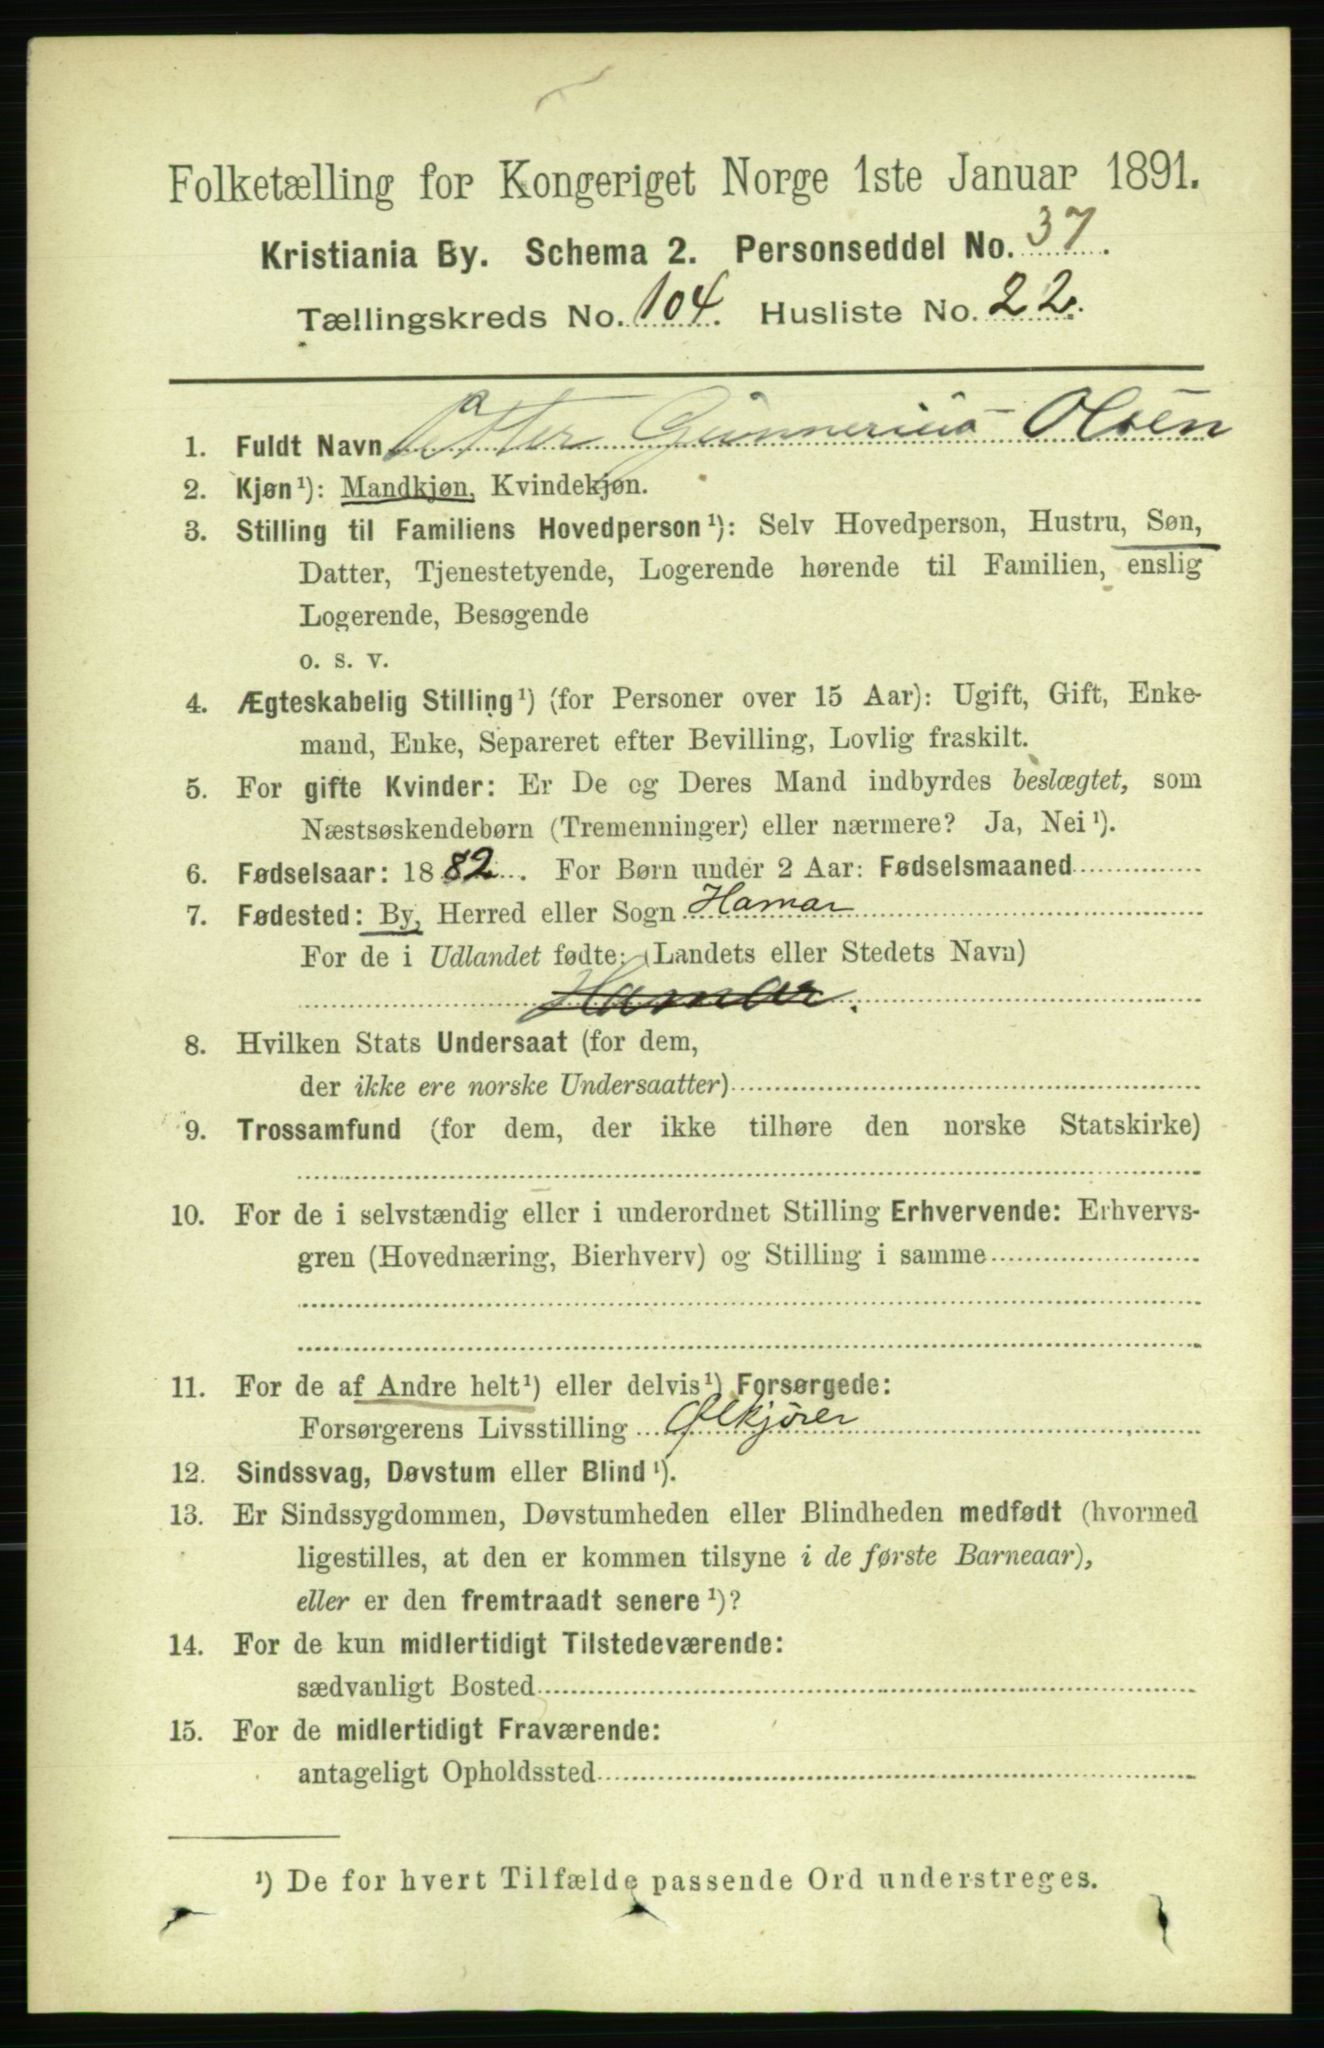 Folketælling for Kongeriget Norge 1ste Januar 1891.
Kristiania By. Schema 2. Personseddel No. 37.
Tællingskreds No. 104. Husliste No. 22.
1. Fuldt Navn Otter Gunnerius Olsen
2. Kjøn¹): Mandkjøn, Kvindekjøn.
3. Stilling til Familiens Hovedperson¹): Selv Hovedperson, Hustru, Søn,
Datter, Tjenestetyende, Logerende hørende til Familien, enslig
Logerende, Besøgende
o. s. v.
4. Ægteskabelig Stilling¹) (for Personer over 15 Aar): Ugift, Gift, Enke-
mand, Enke, Separeret efter Bevilling, Lovlig fraskilt.
5. For gifte Kvinder: Er De og Deres Mand indbyrdes beslægtet, som
Næstsøskendebørn (Tremenninger) eller nærmere? Ja, Nei¹).
6. Fødselsaar: 1882. For Børn under 2 Aar: Fødselsmaaned
7. Fødested: By, Herred eller Sogn Hamar
For de i Udlandet fødte: (Landets eller Stedets Navn)
Hamar.
8. Hvilken Stats Undersaat (for dem,
der ikke ere norske Undersaatter)
9. Trossamfund (for dem, der ikke tilhøre den norske Statskirke)
10. For de i selvstændig eller i underordnet Stilling Erhvervende: Erhvervs-
gren (Hovednæring, Bierhverv) og Stilling i samme
11. For de af Andre helt¹) eller delvis¹) Forsørgede:
Forsørgerens Livsstilling Ølkjører
12. Sindssvag, Døvstum eller Blind¹).
13. Er Sindssygdommen, Døvstumheden eller Blindheden medfødt (hvormed
ligestilles, at den er kommen tilsyne i de første Barneaar),
eller er den fremtraadt senere¹)?
14. For de kun midlertidigt Tilstedeværende:
sædvanligt Bosted
15. For de midlertidigt Fraværende:
antageligt Opholdssted
¹) De for hvert Tilfælde passende Ord understreges.